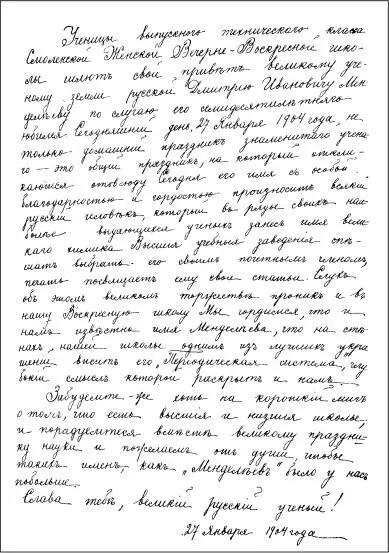 Ученицы выпускного технического класса
Смоленской Женской Вечерне-Воскресной шко-
лы шлютъ свой привѣтъ великому уче-
ному земли русской Дмитрію Ивановичу Мен-
делѣеву по случаю его семидесятилѣтняго
юбилея Сегодняшній день, 27 Января 1904 года, не
только домашній праздникъ знаменитаго учена
го – это общій праздникъ, на который отклик-
каются отовсюду Сегодня его имя съ особой
благодарностью и гордостью произноситъ всякій
русскій человѣкъ, который въ ряды своихъ наи
болѣе выдающихся ученыхъ занесъ имя вели-
каго химика Высшія учебныя заведенія спѣ-
шатъ выбрать его своимъ почетнымъ членомъ,
печать посвящаетъ ему свои статьи. Слухъ
объ этомъ великомъ торжествѣ проникъ и въ
нашу Воскресную школу Мы гордимся, что и
намъ извѣстно имя Менделѣева, что на стѣ
нахъ нашей школы однимъ изъ лучшихъ укра
шеній виситъ его „Періодическая система", глу
бокій смыслъ которой раскрытъ и намъ
Забудьте-же хоть на короткій мигъ
о томъ, что есть высшія и низшія школы,
и порадуемтеся вмѣстѣ великому праздни-
ку науки и пожелаемъ отъ души, чтобы
такихъ именъ, какъ „Менделѣевъ" было у насъ
побольше.
Слава тебѣ, великій русскій ученый!
27 Января 1904 года